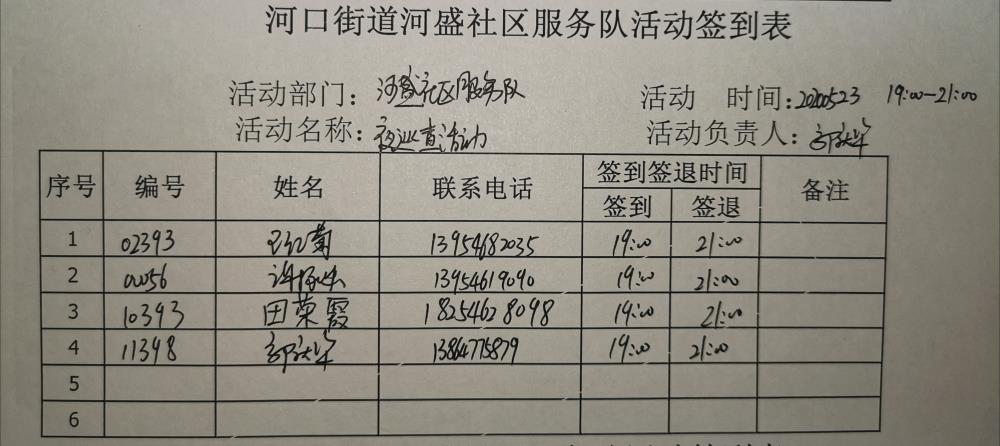 河口街道河盛社区服务队活动签到表
活动部门：河盛社区服务队 活动 时间：20200523 19:00-21:00
活动名称：夜巡查活动 活动负责人：
序号 编号 姓名 联系电话 签到签退时间 备注
签到 签退
1 02393 王红菊 13954682035 19:00 21:00
2 00056 13954619090 19:00 21:00
3 10393 田荣霞 18254628098 19:00 21:00
4 11398 13864775879 19:00 21:00
5
6